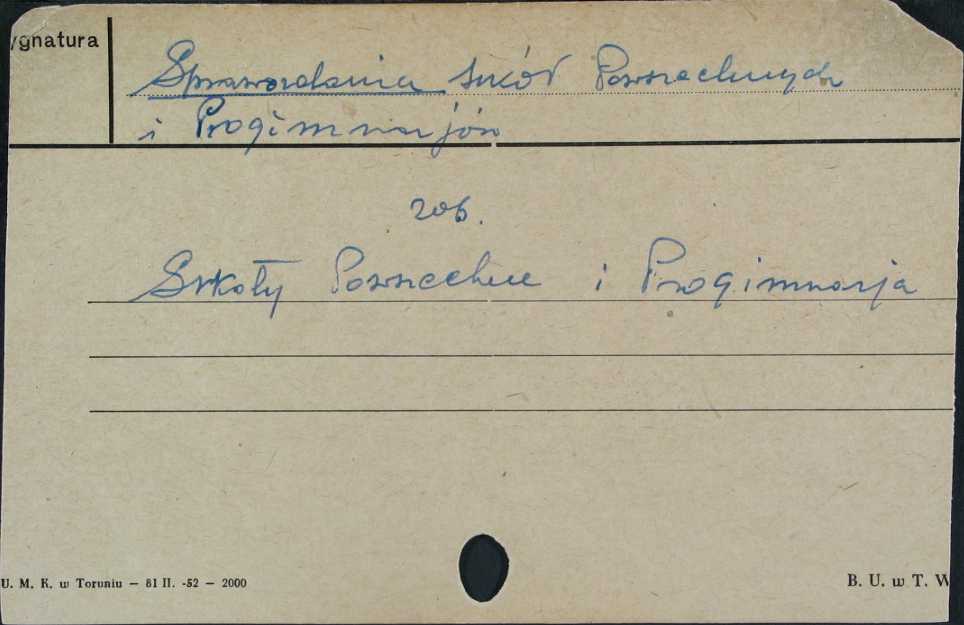 ygnatura
Sprawozdania szkół Powszechnych
i Progimnazjów
zob.
Szkoły Powszechne i Progimnazja
U. M. K. w Toruniu — 81 II. -52 — 2000
B. U. w T. W